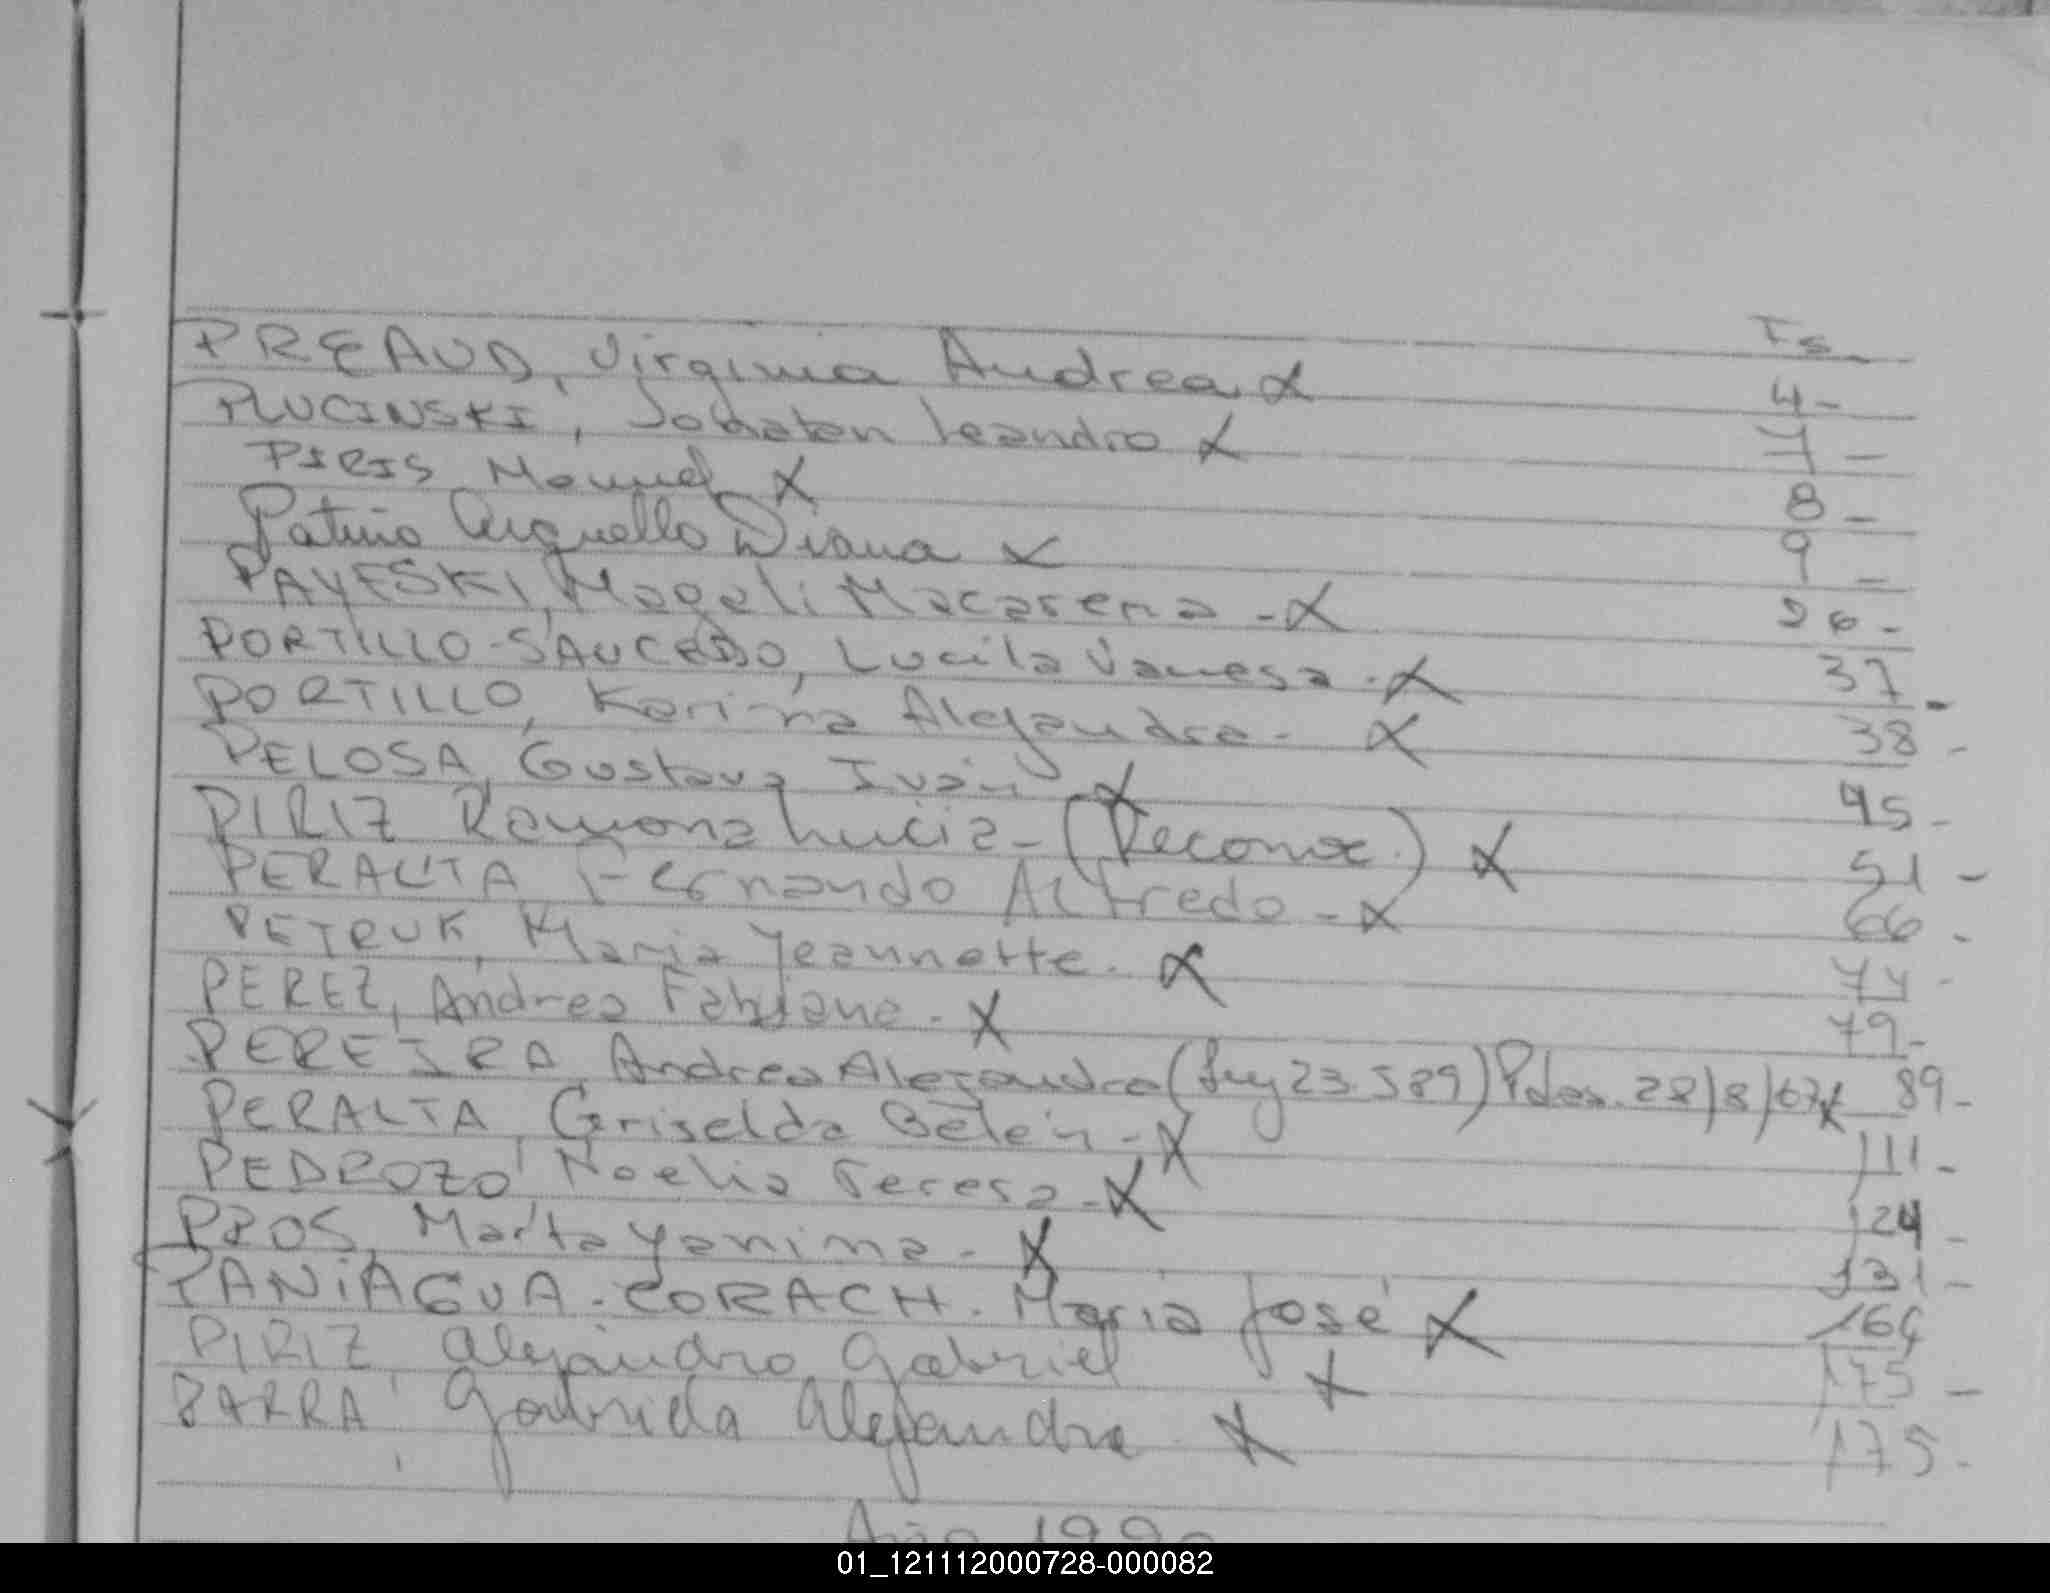 Fs.
PREAUD, Virginia Andrea X 4-
PLUCINSKI, Jonatan Leandro X 7-
PIRIS Manuel X 8-
Patiño Arguello Diana X 9-
PAYESKI, Magali Macarena - X 26-
PORTILLO-SAUCEDO, Lucila Vanesa - X 37-
PORTILLO, Karina Alejandra - X 38-
PELOSA, Gustavo Iván X 45-
PIRIZ Ramona Lucia - (Reconoc.) X 51-
PERALTA Fernando Alfredo - X 66-
PETRUK, Maria Jeannette. X 74-
PEREZ, Andrea Fabiana - X 79-
PEREIRA, Andrea Alejandra (Ley 23.589) X 89-
PERALTA, Griselda Belén - X 111-
PEDROZO, Noelia Teresa - X 124-
PROS, Marta Yanina - X 131-
PANIAGUA - CORACH. Maria José X 164
PIRIZ, Alejandro Gabriel X 175-
PARRA, Gabriela Alejandra X 175-
Año 1990
01_121112000728-000082